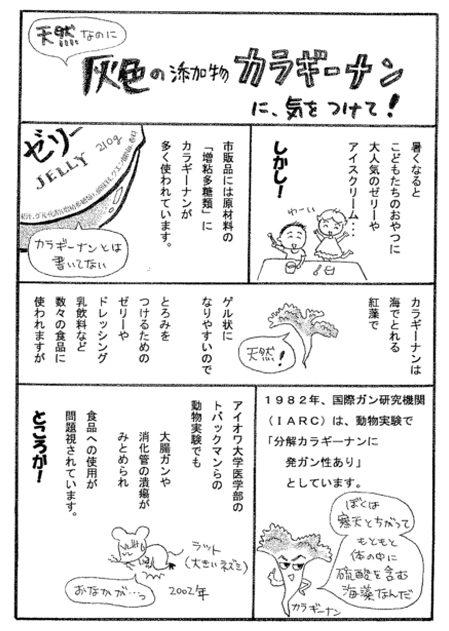 天然なのに
灰色の添加物カラギーナン
に、気をつけて!
暑くなると
こどもたちのおやつに
大人気のゼリーや
アイスクリーム…
しかし!
わーい
市販品には原材料の
「増粘多糖類」に
カラギーナンが
多く使われています。
ゼリー
JELLY 210g
カラギーナンとは
書いてない
カラギーナンは
海でとれる
紅藻で
天然!
ゲル状に
なりやすいので
とろみを
つけるための
ゼリーや
ドレッシング
乳飲料など
数々の食品に
使われますが
1982年、国際ガン研究機関
(IARC)は、動物実験で
「分解カラギーナンに
発ガン性あり」
としています。
ぼくは
寒天とちがって
もともと
体の中に
硫酸を含む
海藻なんだ
カラギーナン
アイオワ大学医学部の
トバックマンらの
動物実験でも
大腸ガンや
消化管の潰瘍が
みとめられ
食品への使用が
問題視されています。
ところが!
ラット
(大きいネズミ)
おなかが…っ
2002年